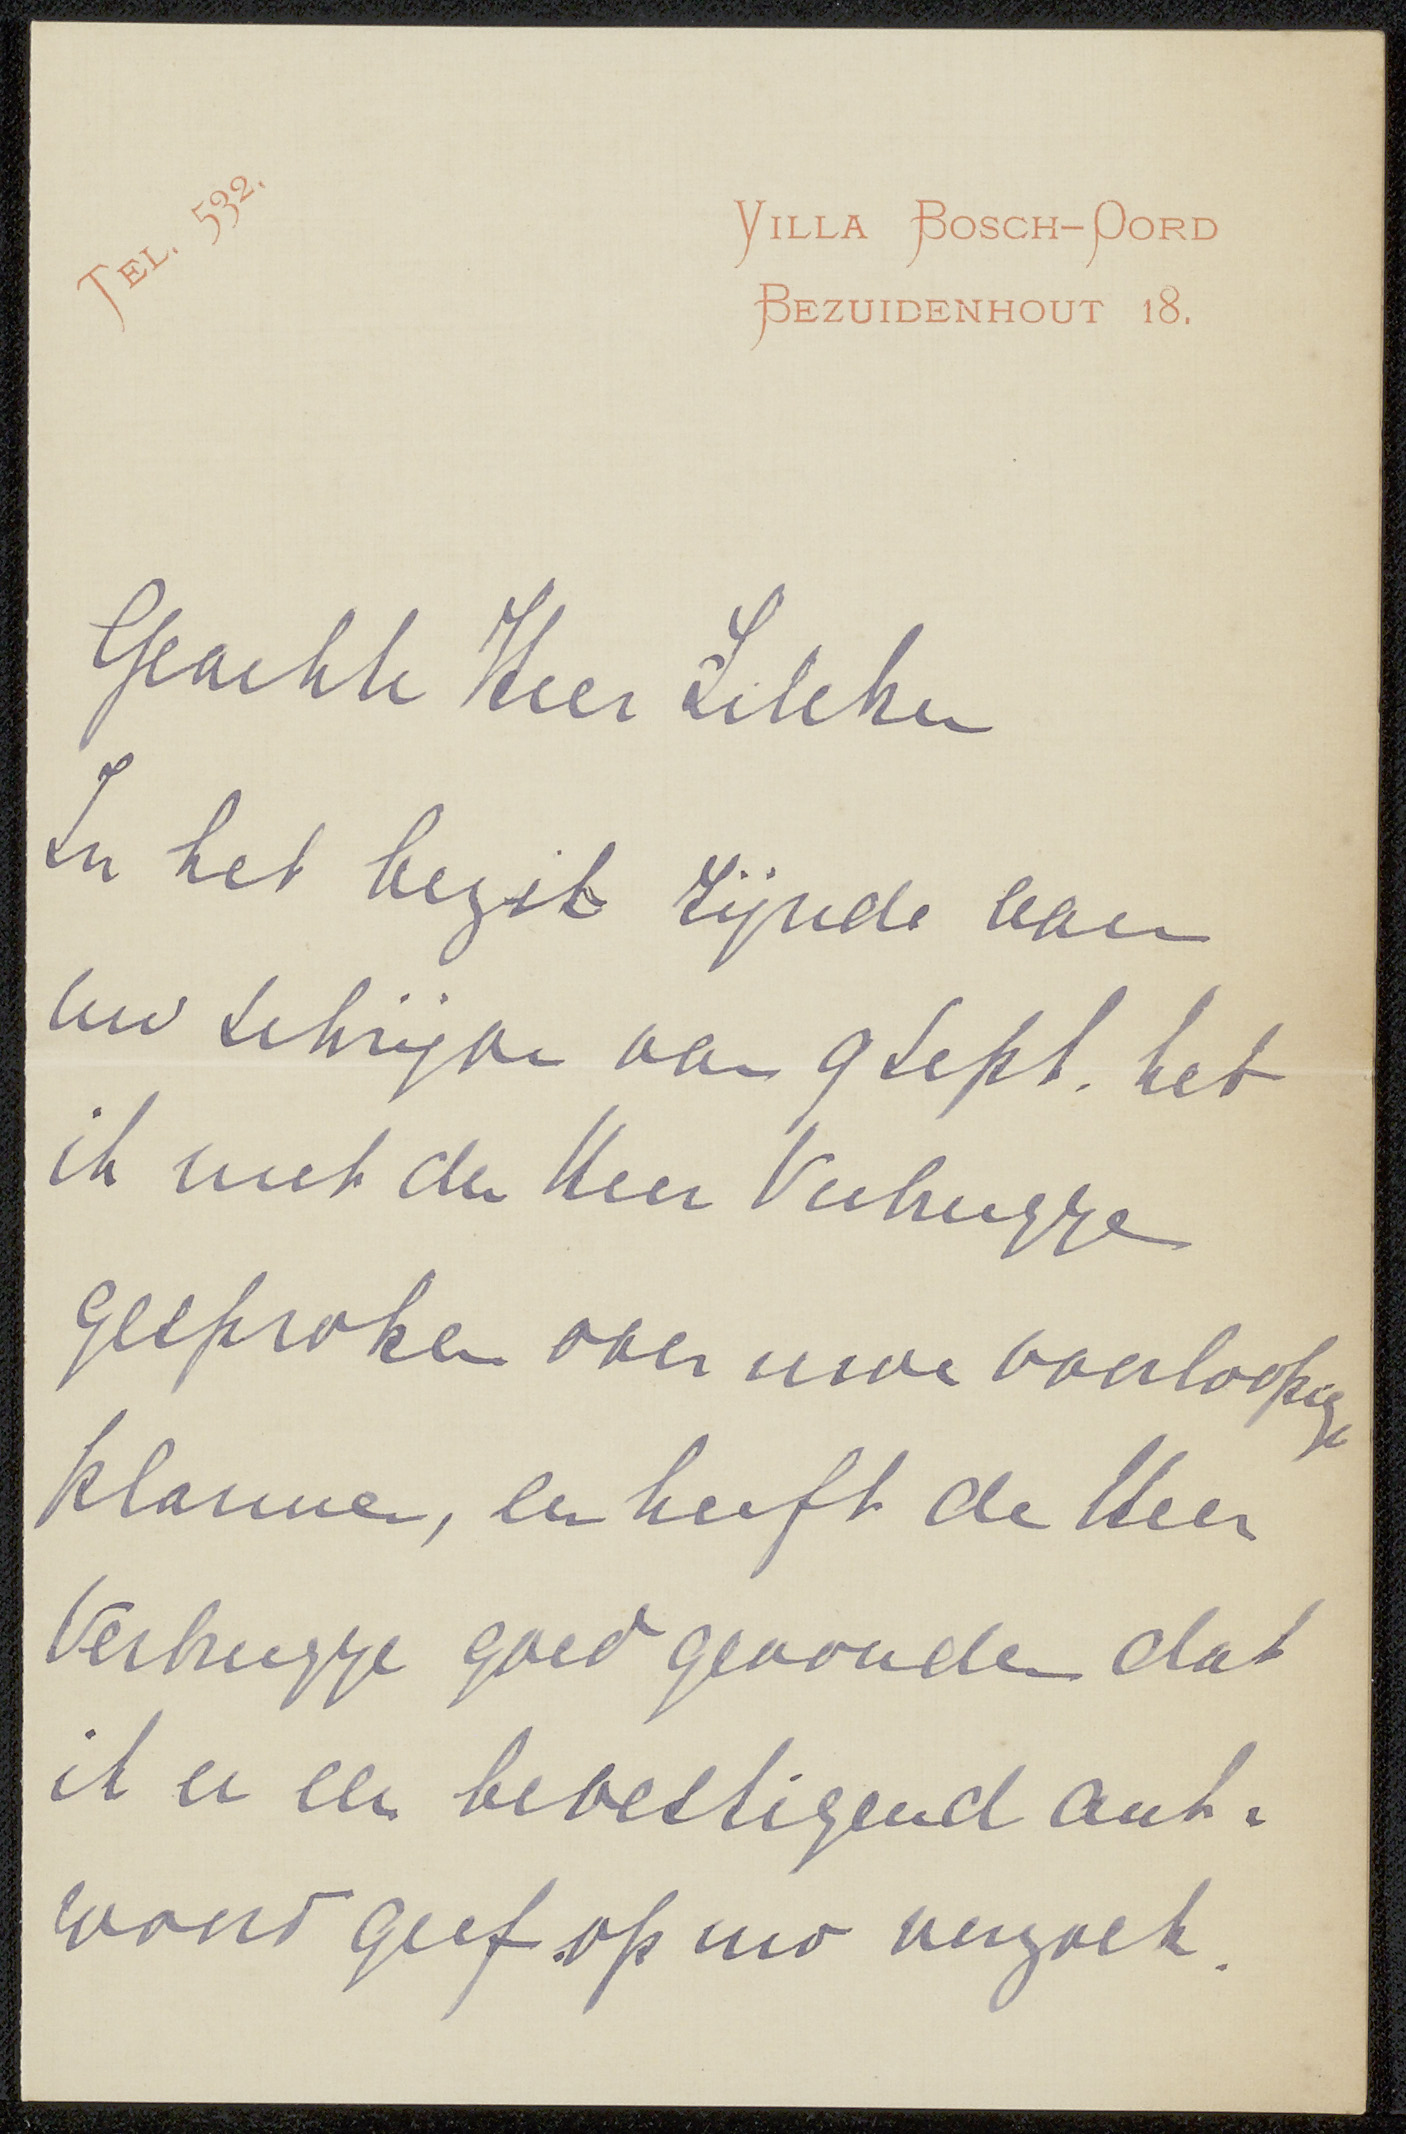 TEL. 532.
VILLA BOSCH-OORD
BEZUIDENHOUT 18.
Geachte Heer Zilcken
In het bezit zijnde van
uw schrijven van 9 Sept. heb
ik met den Heer Verbrugge
gesproken over uwe voorloopige
plannen, en heeft de Heer
Verbrugge goed gevonden dat
ik er een bevestigend ant-
woord geef op uw verzoek.